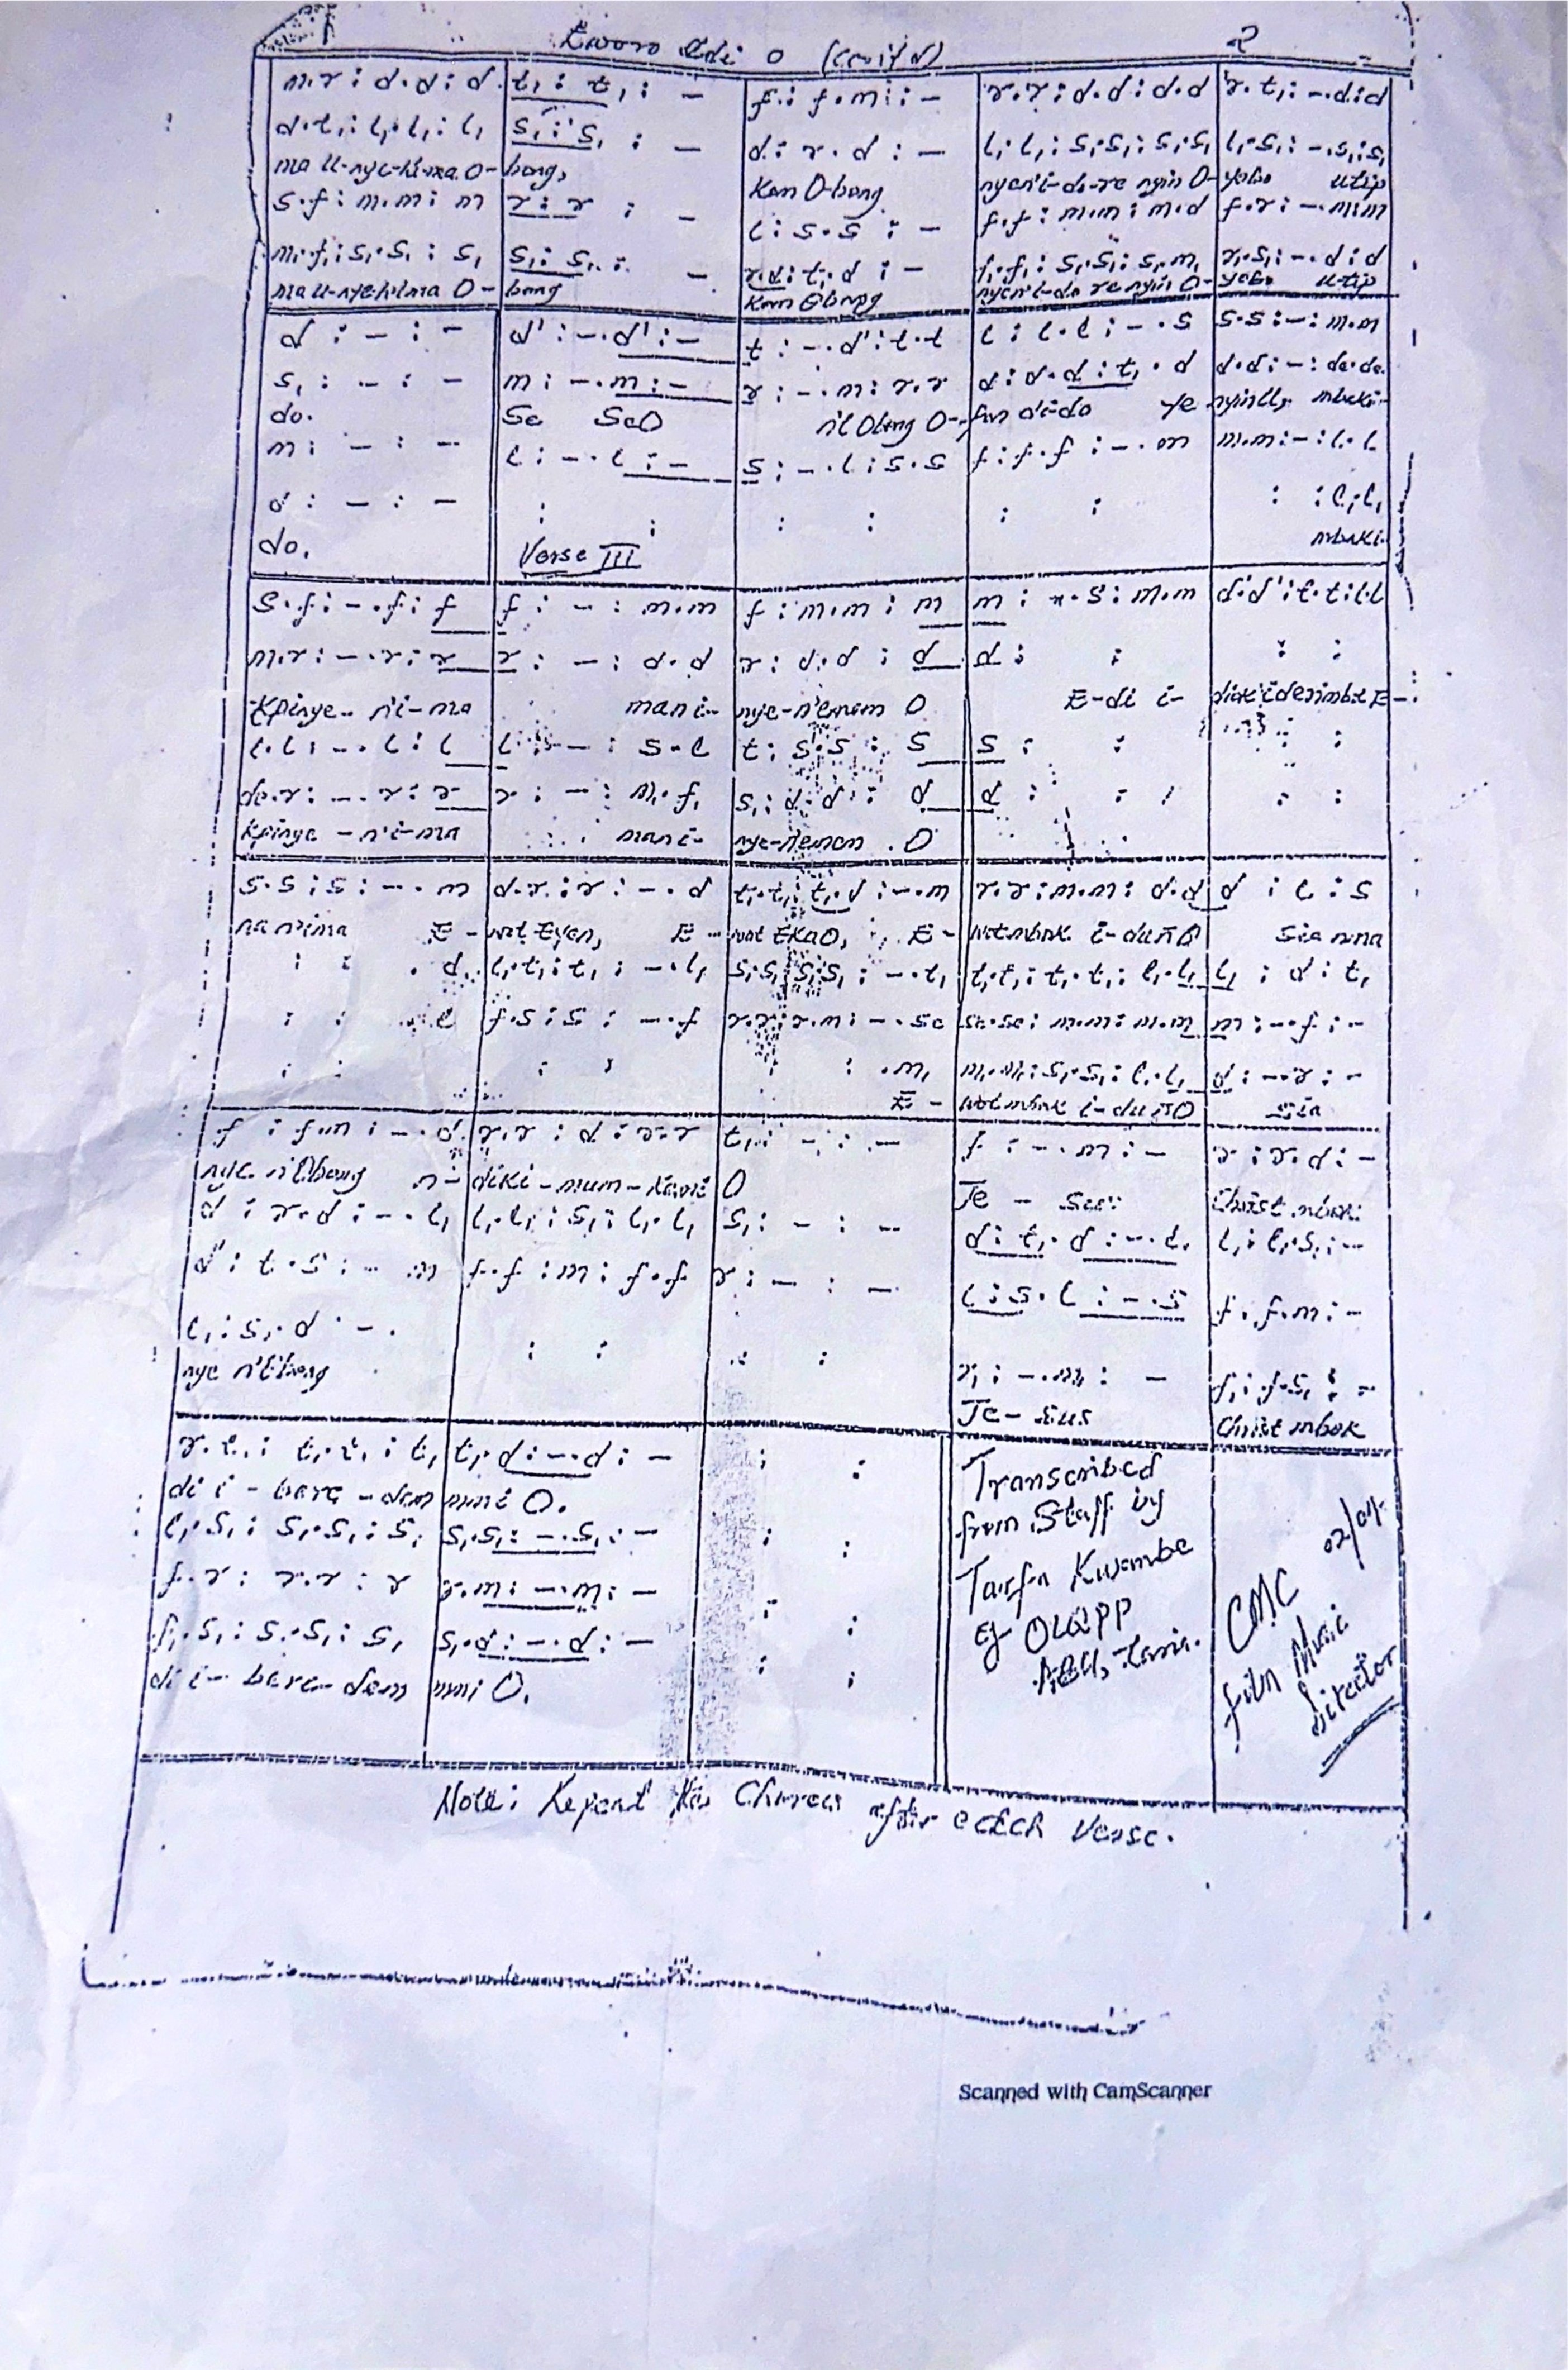 Eworo Edi O (Cont'd) 2
m.r : d.d : d t₁ : t₁ : – f : f.m : – r.r : d.d : d.d r.t₁ : –.d : d
d.t₁ : l₁.l₁ : l₁ s₁ : s₁ : – d : r.d : – l₁.l₁ : s₁.s₁ : s₁.s₁ l₁.s₁ : –.s₁ : s₁
ma u-nye-ki-ma O- bong, Kom O-bong nyen'i-do-re nyin O- yobo utip
s.f : m.m : m r : r : – l : s.s : – f.f : m.m : m.d f.r : –.m : m
m₁.f₁ : s₁.s₁ : s₁ s₁ : s₁ : – r.d : t₁.d : – f₁.f₁ : s₁.s₁ : s₁.m₁ r₁.s₁ : –.d : d
ma u-nye-kima O- bong Kom Obong nyen'i-do re nyin O- yobo utip
d : – : – d' : –.d' : – t : –.d' : t.t l : l.l : –.s s.s : – : m.m
s₁ : – : – m : –.m : – r : –.m : r.r d : d.d : t₁.d d.d : – : de.de
do. Se Se O n'l Obong O- fon di-do ye nyin U, mbaki-
m : – : – l : –.l : – s : –.l : s.s f : f.f : –.m m.m : – : l.l
d : – : – : : : : : : : : l₁.l₁
do. Verse III mbaki-
s.f : –.f : f f : – : m.m f : m.m : m m : m.s : m.m d.d' : t.t : l.l
m.r : –.r : r r : – : d.d r : d.d : d d : : : :
Kpinye- n'i-ma mani- nye-n'emem O E-di i-
l.l : –.l : l l : – : s.l t : s.s : s s : : : :
de.r : –.r : r r : – : m₁.f₁ s₁ : d.d : d d : : : :
Kpinye - n'i-ma mani- nye-nemem O
s.s : s : –.m d.r : r : –.d t₁.t₁ : t₁.d : –.m r.r : m.m : d.d d : l : s
na nima E- wot Eyen, E- wot Eka O, E- wot mbok i-du ñ O Sia nna
: : .d l₁.t₁ : t₁ : –.l₁ s₁.s₁ : s₁.s₁ : –.t₁ t₁.t₁ : t₁.t₁ : l₁.l₁ l₁ : d : t₁
: : .l f.s : s : –.f r.r : r.m : –.se se.se : m.m : m.m m : –.f : –
: : : : : : .m₁ m₁.m₁ : s₁.s₁ : l₁.l₁ d : –.r : –
E- wot mbok i-du ñ O Sia
f : f.m : –.d r.r : d : r.r t₁ : – : – f : –.m : – r : r.d : –
nye n'Obong n- diki - mum - O Je - Christ mbok
d : r.d : –.l₁ l₁.l₁ : s₁ : l₁.l₁ s₁ : – : – d : t₁.d : –.t₁ l₁ : l₁.s₁ : –
d' : t.s : –.m f.f : m : f.f r : – : – l : s.l : –.s f : f.m : –
l₁ : s₁.d : –. : : : : r₁ : –.m₁ : – f₁ : f₁.s₁ : –
nye n'Obong Je - sus Christ mbok
r.t₁ : t₁.t₁ : t₁ t₁.d : –.d : – : : Transcribed
di i - bere - dem mmi O. from Staff by
l₁.s₁ : s₁.s₁ : s₁ s₁.s₁ : –.s₁ : – : : Tarfa Kwambe
f.r : r.r : r r.m : –.m : – : : of OLQPP
f₁.s₁ : s₁.s₁ : s₁ s₁.d : –.d : – : : ABU, Zaria.
di i - bere - dem mmi O.
CMC 02/04
film Music
Director
Note: Repeat the Chorus after each Verse.
Scanned with CamScanner